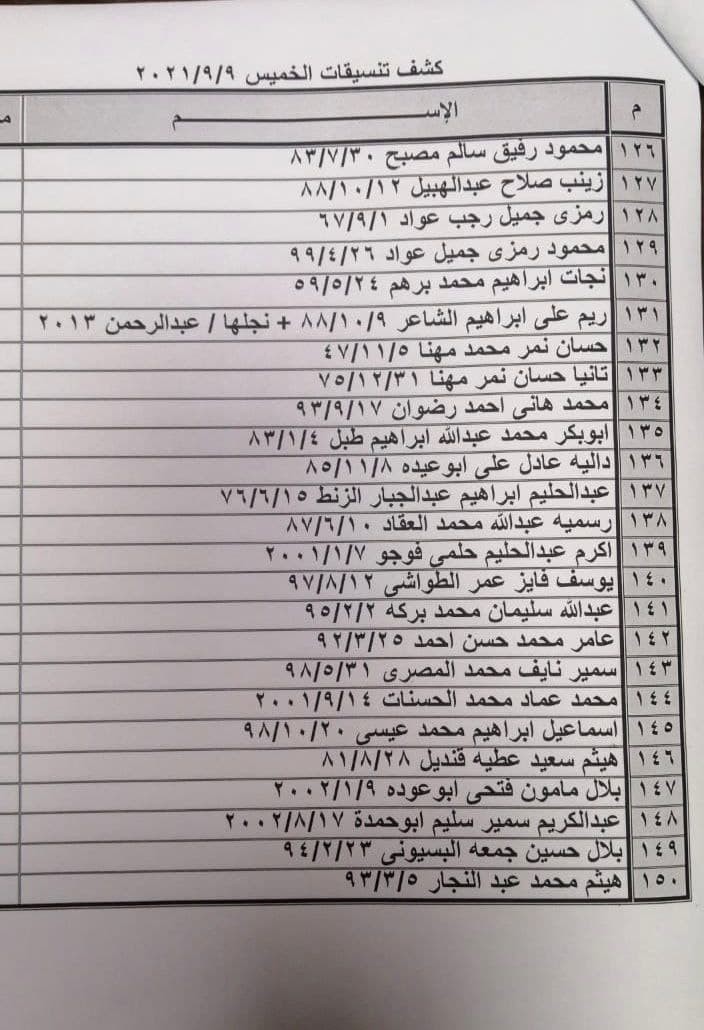 كشف تنسيقات الخميس ٢٠٢١/٩/٩
م الإســــــــم م
١٢٦ محمود رفيق سالم مصبح ٨٣/٧/٣٠
١٢٧ زينب صلاح عبدالهبيل ٨٨/١٠/١٢
١٢٨ رمزى جميل رجب عواد ٦٧/٩/١
١٢٩ محمود رمزى جميل عواد ٩٩/٤/٢٦
١٣٠ نجات ابراهيم محمد برهم ٥٩/٥/٢٤
١٣١ ريم على ابراهيم الشاعر ٨٨/١٠/٩ + نجلها / عبدالرحمن ٢٠١٣
١٣٢ حسان نمر محمد مهنا ٤٧/١١/٥
١٣٣ تانيا حسان نمر مهنا ٧٥/١٢/٣١
١٣٤ محمد هانى احمد رضوان ٩٣/٩/١٧
١٣٥ ابوبكر محمد عبدالله ابراهيم طبل ٨٣/١/٤
١٣٦ داليه عادل على ابوعيده ٨٥/١١/٨
١٣٧ عبدالحليم ابراهيم عبدالجبار الزنط ٧٦/٦/١٥
١٣٨ رسميه عبدالله محمد العقاد ٨٧/٦/١٠
١٣٩ اكرم عبدالحليم حلمى فوجو ٢٠٠١/١/٧
١٤٠ يوسف فايز عمر الطواشى ٩٧/٨/١٢
١٤١ عبدالله سليمان محمد بركه ٩٥/٢/٢
١٤٢ عامر محمد حسن احمد ٩٢/٣/٢٥
١٤٣ سمير نايف محمد المصرى ٩٨/٥/٣١
١٤٤ محمد عماد محمد الحسنات ٢٠٠١/٩/١٤
١٤٥ اسماعيل ابراهيم محمد عيسى ٩٨/١٠/٢٠
١٤٦ هيثم سعيد عطيه قنديل ٨١/٨/٢٨
١٤٧ بلال مامون فتحى ابوعوده ٢٠٠٢/١/٩
١٤٨ عبدالكريم سمير سليم ابوحمدة ٢٠٠٢/٨/١٧
١٤٩ بلال حسين جمعه البسيونى ٩٤/٢/٢٣
١٥٠ هيثم محمد عبد النجار ٩٣/٣/٥